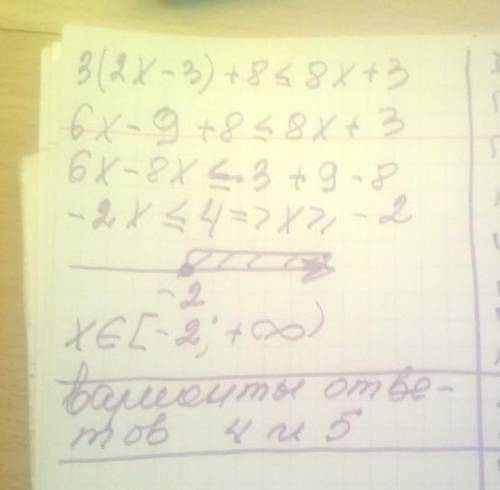 3(2x-3)+8≤8x+3
6x-9+8≤8x+3
6x-8x≤3+9-8
-2x≤4=>x≥-2
-2
x∈[-2;+∞)
варианты отве-
тов 4 и 5